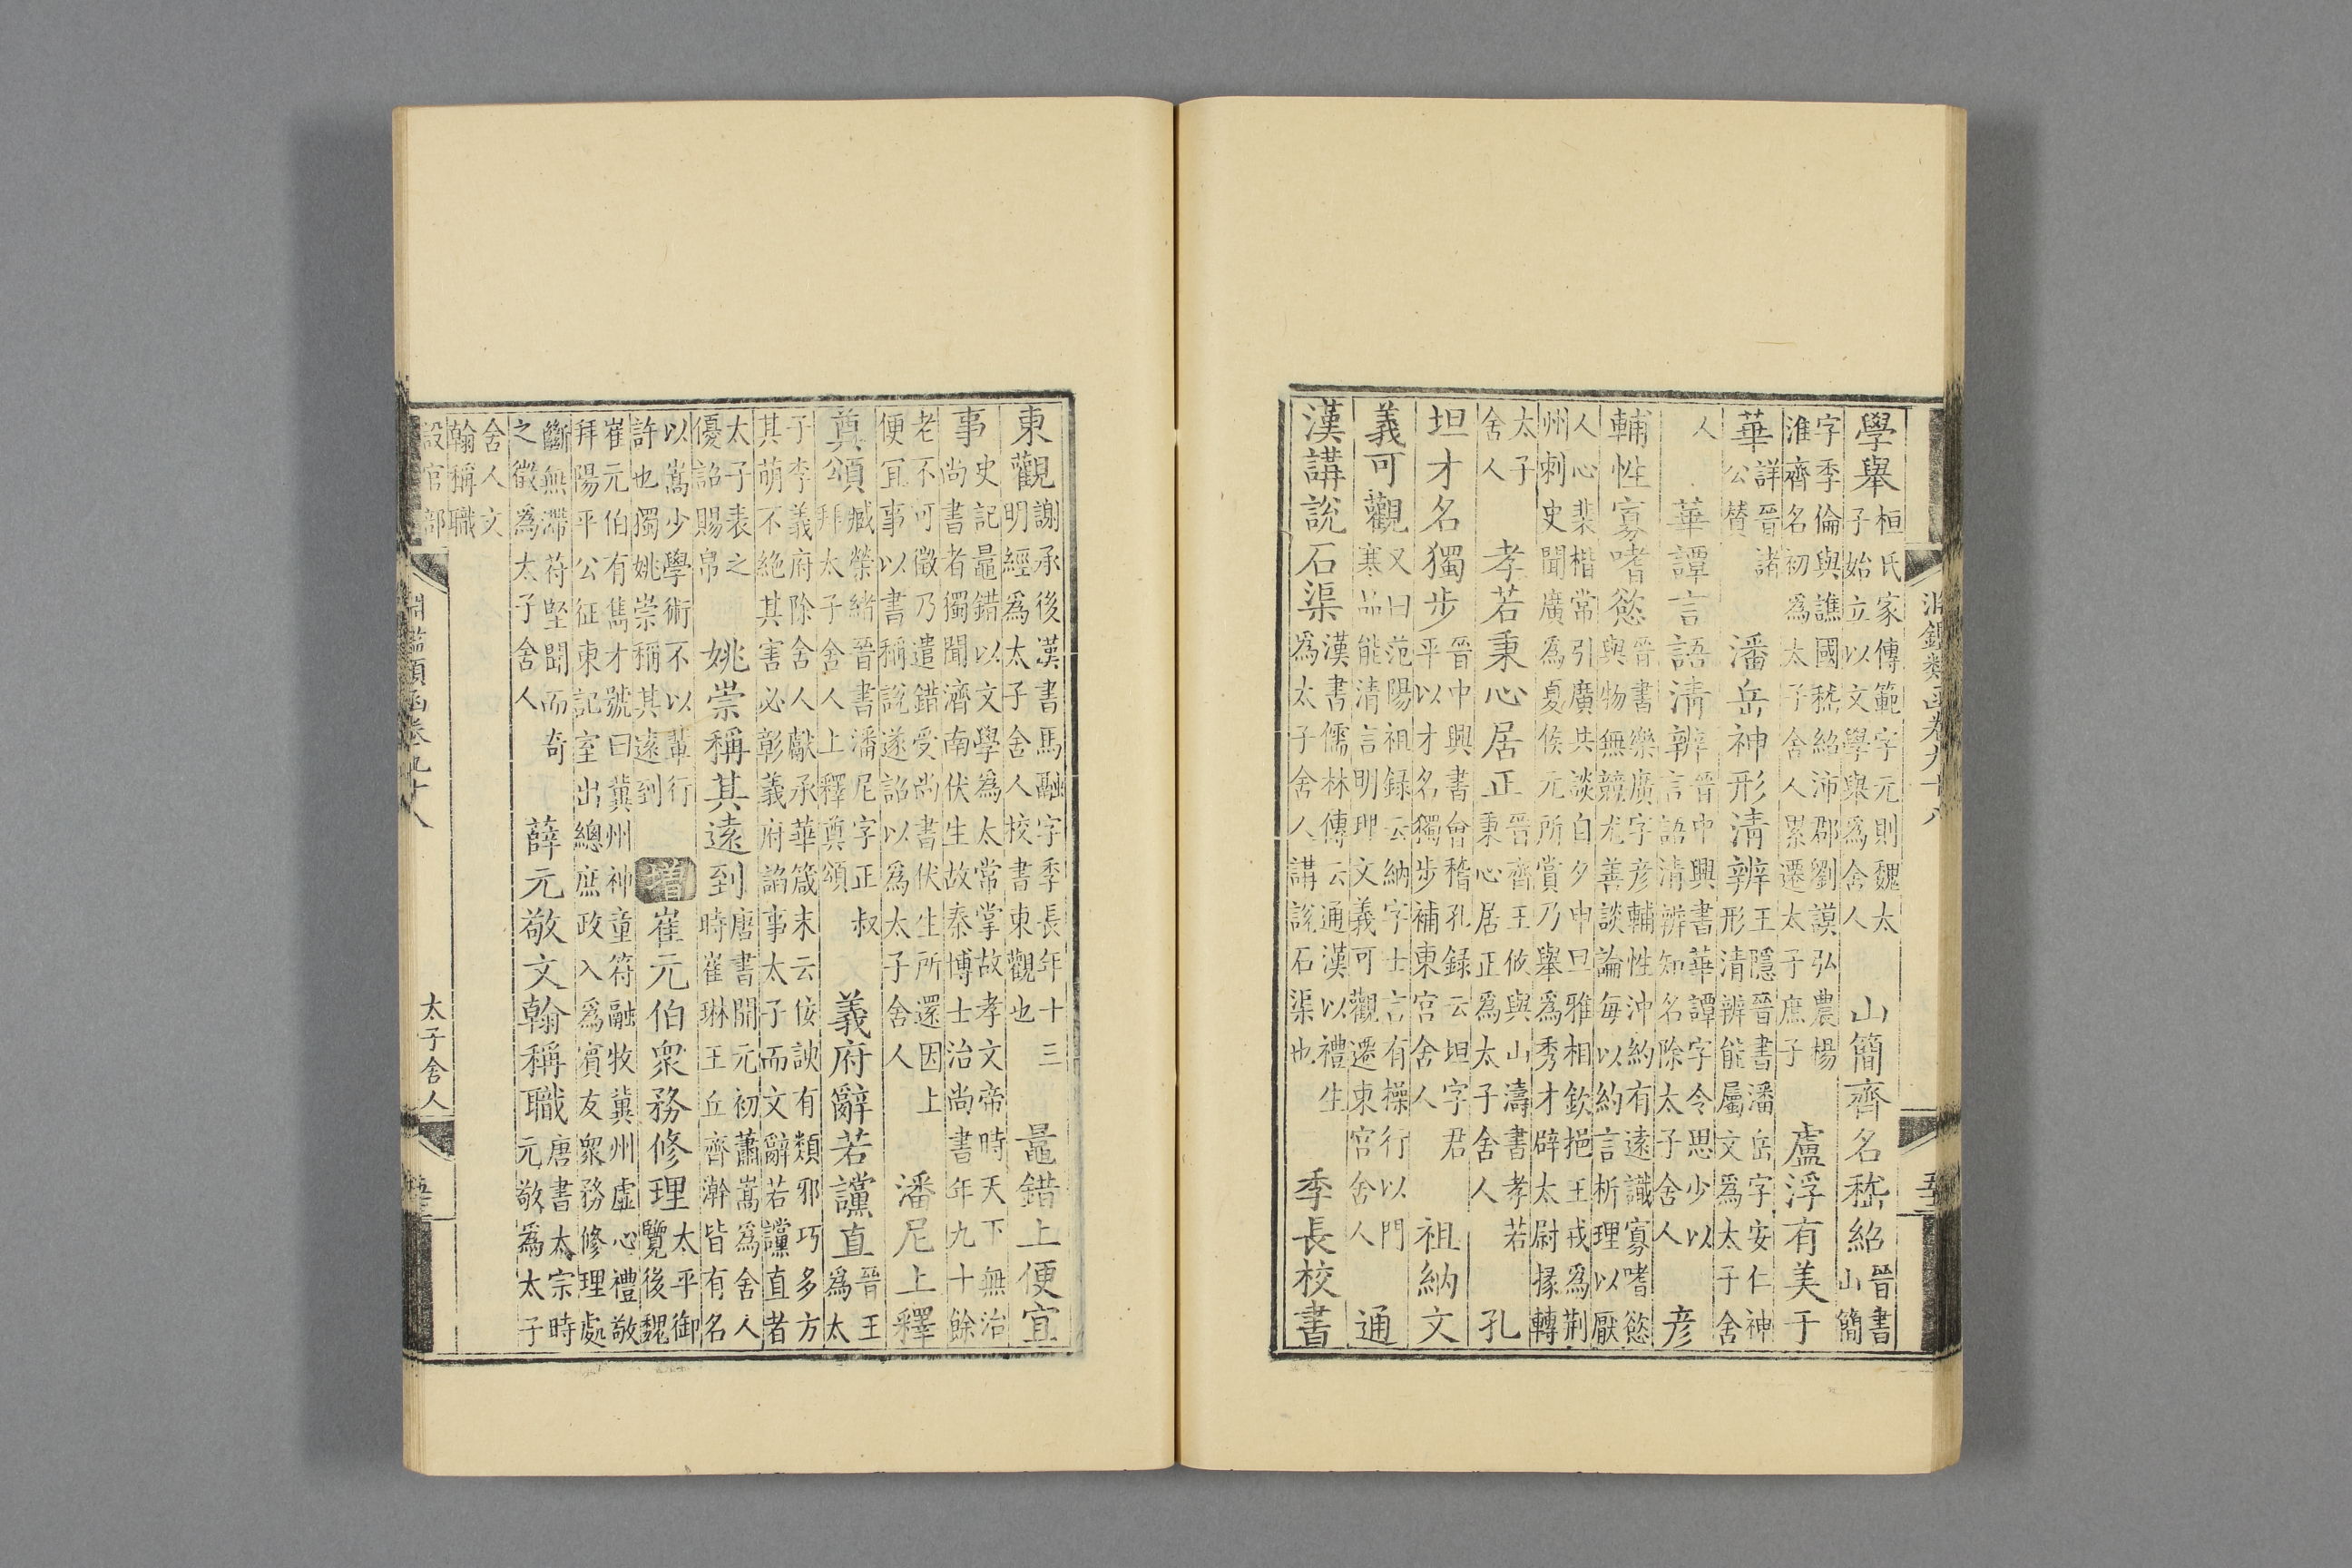 淵鑑類函卷九十八
學舉桓氏家傳範字元則魏太子始立以文學舉為舍人山簡齊名嵇紹晉書山簡
字季倫與譙國嵇紹沛郡劉謨弘農楊淮齊名初為太子舍人累遷太子庶子盧浮有美于
華詳晉諸公贊潘岳神形清辨王隱晉書潘岳字安仁神形清辨能屬文為太子舍
人華譚言語清辨晉中興書華譚字令思少以言語清辨知名除太子舍人彦
輔性寡嗜慾晉書樂廣字彦輔性沖約有遠識寡嗜慾與物無競尤善談論每以約言析理以厭
人心裴楷常引廣共談自夕申旦雅相欽挹王戎為荆州刺史聞廣為夏侯元所賞乃舉為秀才辟太尉掾轉
太子舍人孝若秉心居正晉齊王攸與山濤書孝若秉心居正為太子舍人孔
坦才名獨步晉中興書會稽孔録云坦字君平以才名獨步補東宮舍人祖納文
義可觀又曰范陽祖録云納字士言有操行以門寒品能清言明理文義可觀遷東宮舍人通
漢講說石渠漢書儒林傳云通漢以禮生為太子舍人講說石渠也季長校書
東觀謝承後漢書馬融字季長年十三明經為太子舍人校書東觀也鼂錯上便宜
事史記鼂錯以文學為太常掌故孝文帝時天下無治尚書者獨聞濟南伏生故秦博士治尚書年九十餘
老不可徵乃遣錯受尚書伏生所還因上便宜事以書稱說遂詔以為太子舍人潘尼上釋
奠頌臧榮緒晉書潘尼字正叔拜太子舍人上釋奠頌義府辭若讜直晉王為太
子李義府除舍人獻承華箴末云佞諛有類邪巧多方其萌不絶其害必彰義府諂事太子而文辭若讜直者
太子表之優詔賜帛姚崇稱其遠到唐書開元初蕭嵩為舍人時崔琳王丘齊澣皆有名
以嵩少學術不以輩行許也獨姚崇稱其遠到增崔元伯衆務修理太平御覽後魏
崔元伯有雋才號曰冀州神童符融牧冀州虛心禮敬拜陽平公征東記室出總庶政入為賓友衆務修理處
斷無滯苻堅聞而奇之徵為太子舍人薛元敬文翰稱職唐書太宗時元敬為太子
舍人文翰稱職
設官部
淵鑑類函卷九十八
太子舍人